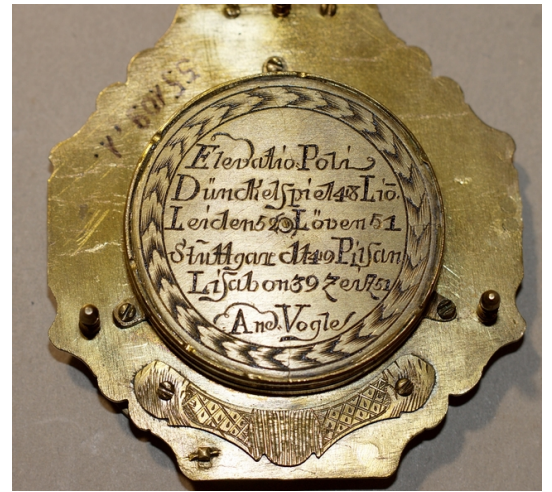 55.109.1.
Elevatio Poli
Dünckelspiel 48 Liō.
Leiden 52 Löven 51
Stuttgardt 49 Pilsan
Lisabon 39
And. Vogler